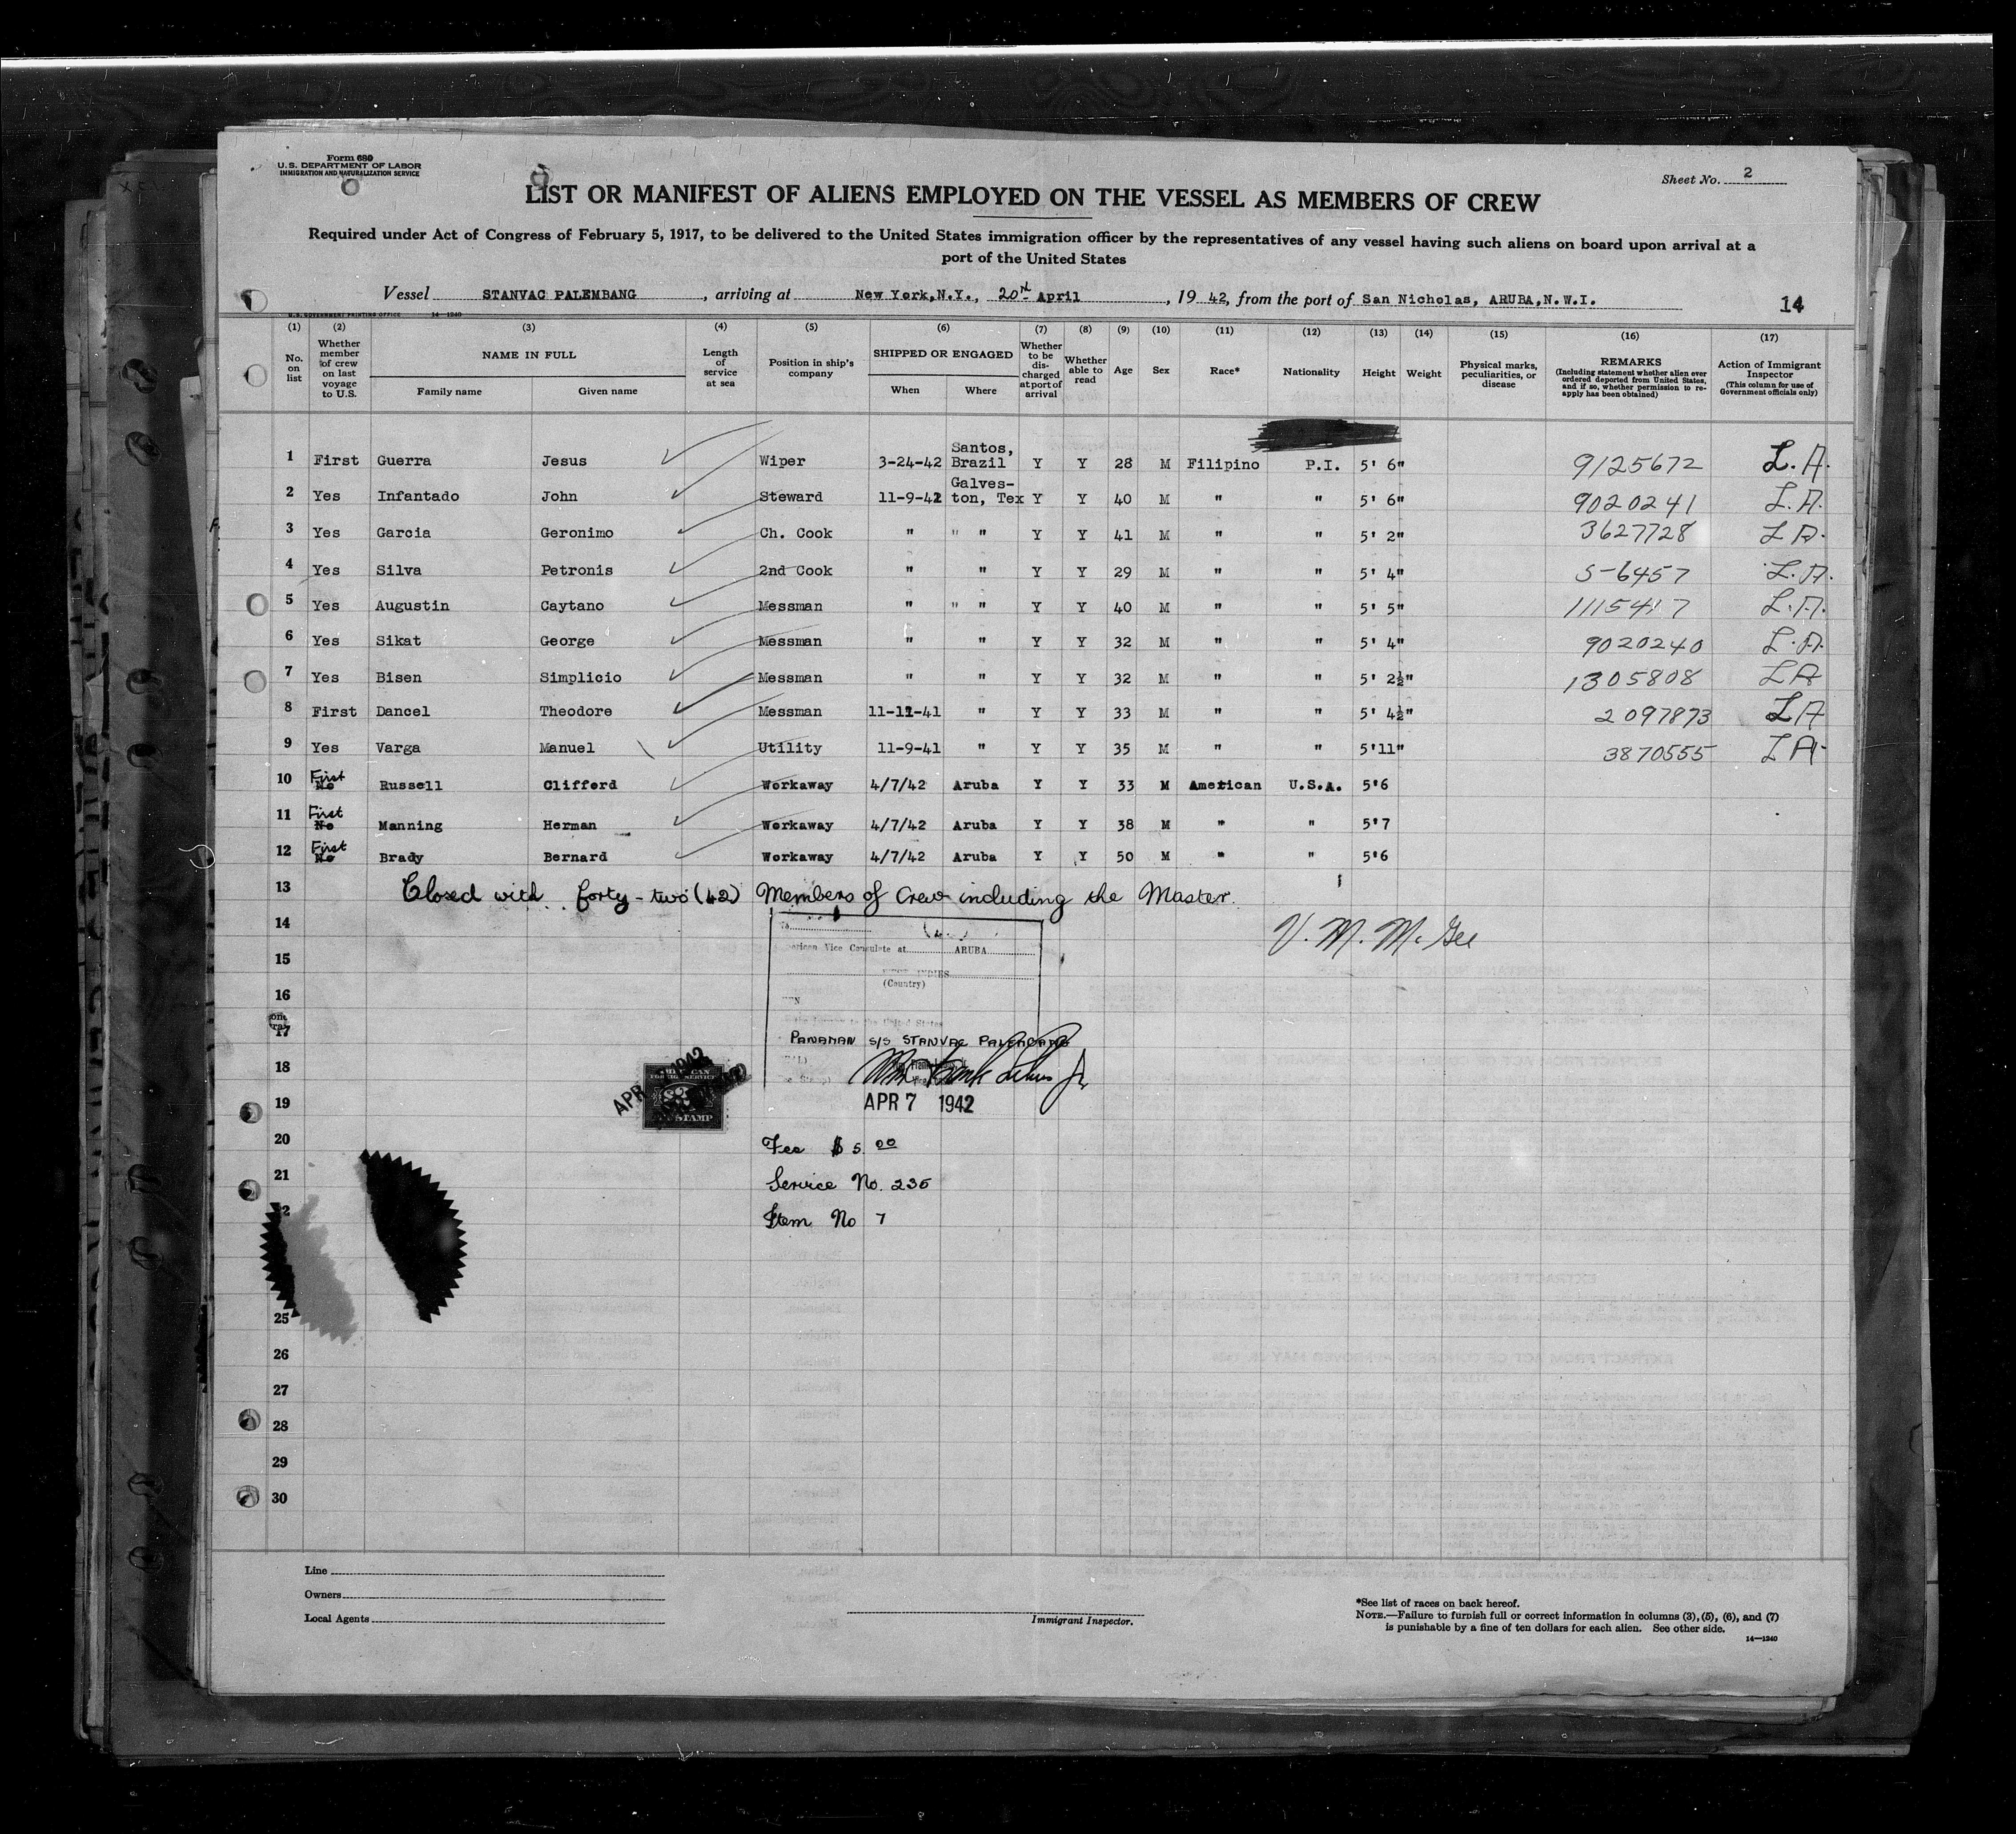 Form 680
U.S. DEPARTMENT OF LABOR
IMMIGRATION AND NATURALIZATION SERVICE
Sheet No. 2
LIST OR MANIFEST OF ALIENS EMPLOYED ON THE VESSEL AS MEMBERS OF CREW
Required under Act of Congress of February 5, 1917, to be delivered to the United States immigration officer by the representatives of any vessel having such aliens on board upon arrival at a
port of the United States
Vessel STANVAC PALEMBANG, arriving at New York, N.Y., 20th April, 1942, from the port of San Nicholas, ARUBA, N.W.I. 14
U.S. GOVERNMENT PRINTING OFFICE 14—1240
(1) No. on list
(2) Whether member of crew on last voyage to U.S.
(3) NAME IN FULL Family name Given name
(4) Length of service at sea
(5) Position in ship's company
(6) SHIPPED OR ENGAGED When Where
(7) Whether to be discharged at port of arrival
(8) Whether able to read
(9) Age
(10) Sex
(11) Race*
(12) Nationality
(13) Height
(14) Weight
(15) Physical marks, peculiarities, or disease
(16) REMARKS (Including statement whether alien ever ordered deported from United States, and if so, whether permission to re-apply has been obtained)
(17) Action of Immigrant Inspector (This column for use of Government officials only)
1 First Guerra Jesus Wiper 3-24-42 Santos, Brazil Y Y 28 M Filipino P.I. 5' 6" 9125672 L.A.
2 Yes Infantado John Steward 11-9-41 Galves-ton, Tex Y Y 40 M " " 5' 6" 9020241 L.A.
3 Yes Garcia Geronimo Ch. Cook " " " Y Y 41 M " " 5' 2" 3627728 L A.
4 Yes Silva Petronis 2nd Cook " " Y Y 29 M " " 5' 4" 5-6457 L.A.
5 Yes Augustin Caytano Messman " " " Y Y 40 M " " 5' 5" 1115417 L.A.
6 Yes Sikat George Messman " " Y Y 32 M " " 5' 4" 9020240 L.A
7 Yes Bisen Simplicio Messman " " Y Y 32 M " " 5' 2½" 1305808 L A
8 First Dancel Theodore Messman 11-11-41 " Y Y 33 M " " 5' 4½" 2097873 L A
9 Yes Varga Manuel Utility 11-9-41 " Y Y 35 M " " 5'11" 3870555 L A
10 First No Russell Clifford Workaway 4/7/42 Aruba Y Y 33 M American U.S.A. 5'6
11 First No Manning Herman Workaway 4/7/42 Aruba Y Y 38 M " " 5'7
12 First No Brady Bernard Workaway 4/7/42 Aruba Y Y 50 M " " 5'6
13 Closed with forty-two (42) Members of Crew including the Master.
14
V. M. McGee
American Vice Consulate at ARUBA
15
WEST INDIES
(Country)
16
17
PANAMAN S/S STANVAC PALEMBANG
18
19
APR 7 1942
20
Fee $5.00
21
Service No. 235
22
Item No 7
25
26
27
28
29
30
Line
Owners
Local Agents
Immigrant Inspector.
*See list of races on back hereof.
NOTE.—Failure to furnish full or correct information in columns (3), (5), (6), and (7)
is punishable by a fine of ten dollars for each alien. See other side.
14—1240